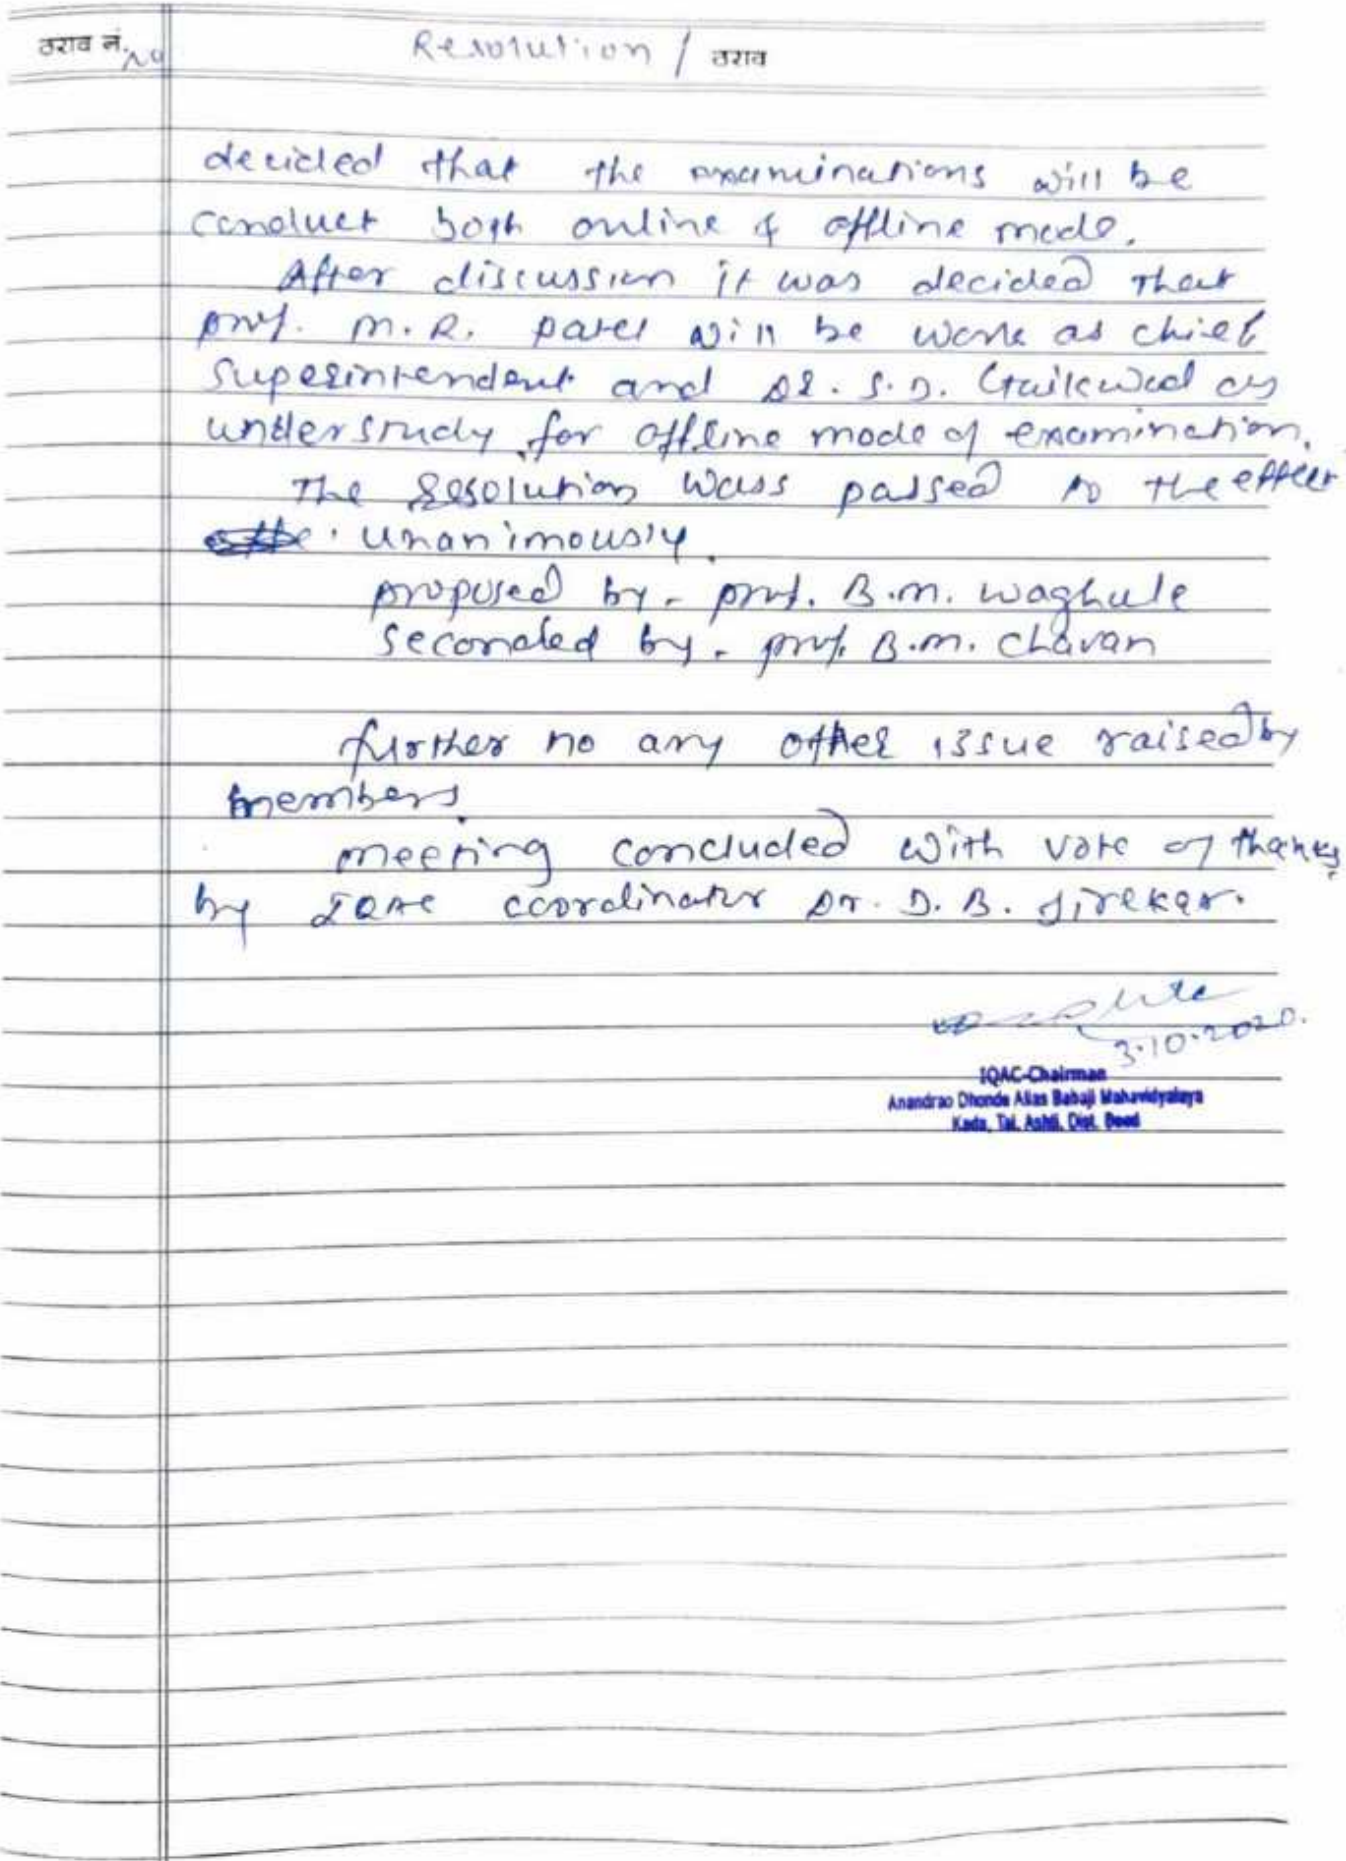 ठराव नं. No
Resolution / ठराव
decided that the examinations will be
conduct both online & offline mode.
After discussion it was decided that
prof. M.R. Patel will be work as chief
Superintendent and Dr. S.D. Gaikwad as
understudy for offline mode of examination.
The Resolution wass passed to the effect
unanimously.
proposed by - prof. B.M. Waghule
Seconded by - prof. B.M. Chavan
further no any other issue raised by
members.
meeting concluded with vote of thanks
by IQAC coordinator Dr. D. B. Jirekar.
3.10.2020.
IQAC-Chairman
Anandrao Dhonde Alias Babaji Mahavidyalaya
Kada, Tal. Ashti, Dist. Beed